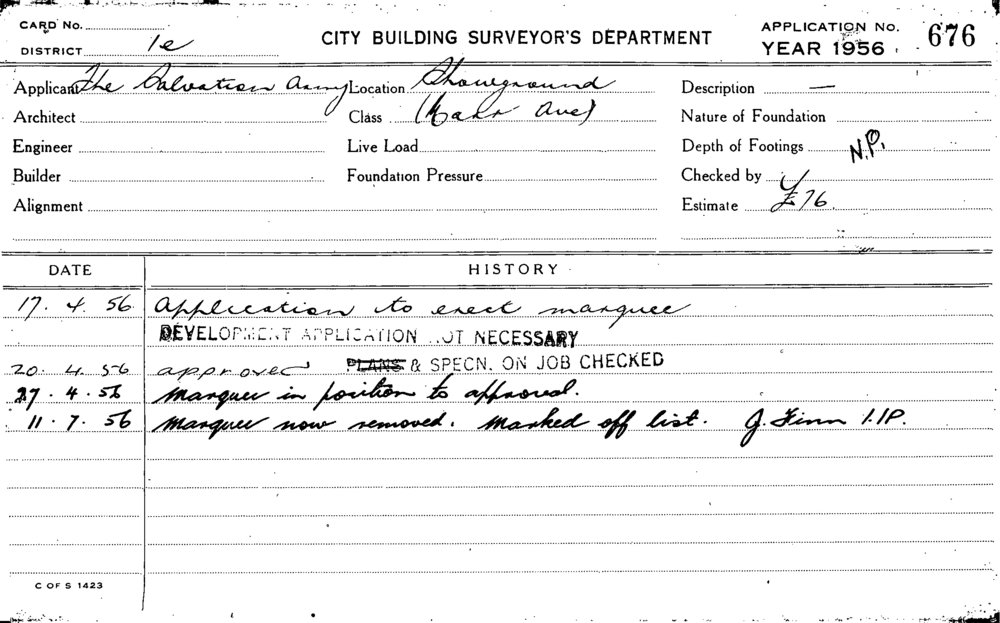 CARD No.
DISTRICT 1e
CITY BUILDING SURVEYOR'S DEPARTMENT
APPLICATION No. 676
YEAR 1956
Applicant The Salvation Army
Location Showground
Description —
Architect
Class (Kahr Ave)
Nature of Foundation
Engineer
Live Load
Depth of Footings N.P.
Builder
Foundation Pressure
Checked by
Alignment
Estimate £76.
DATE HISTORY
17. 4. 56 Application to erect marquee
DEVELOPMENT APPLICATION NOT NECESSARY
20. 4. 56 approved PLANS & SPECN. ON JOB CHECKED
27. 4. 56 Marquee in position to approval.
11. 7. 56 Marquee now removed. Marked off list. J. Finn
C OF S 1423